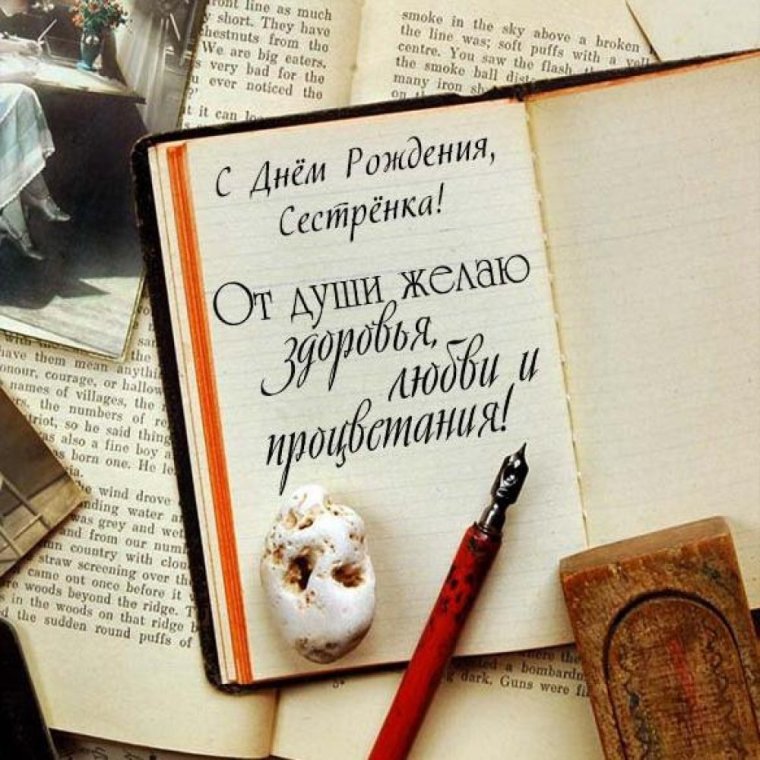 line as much
short. They have
from the
We are big eaters.
very bad for the
ever noticed the
it can
smoke in the sky above a broken
the line was; soft puffs with a
centre. You saw the flash
the smoke ball
many iron
С Днём Рождения,
Сестрёнка!
От души желаю
здоровья,
любви и
процветания!
have them mean
courage, or
names of villages, the
the numbers of
so he said
as also a fine boy
born one. He
wind drove
water
was grey and
and from our
country with
straw screening over the
came out once before it
woods beyond the ridge.
in the woods on that ridge
the sudden round puffs of
a
dark. Guns were